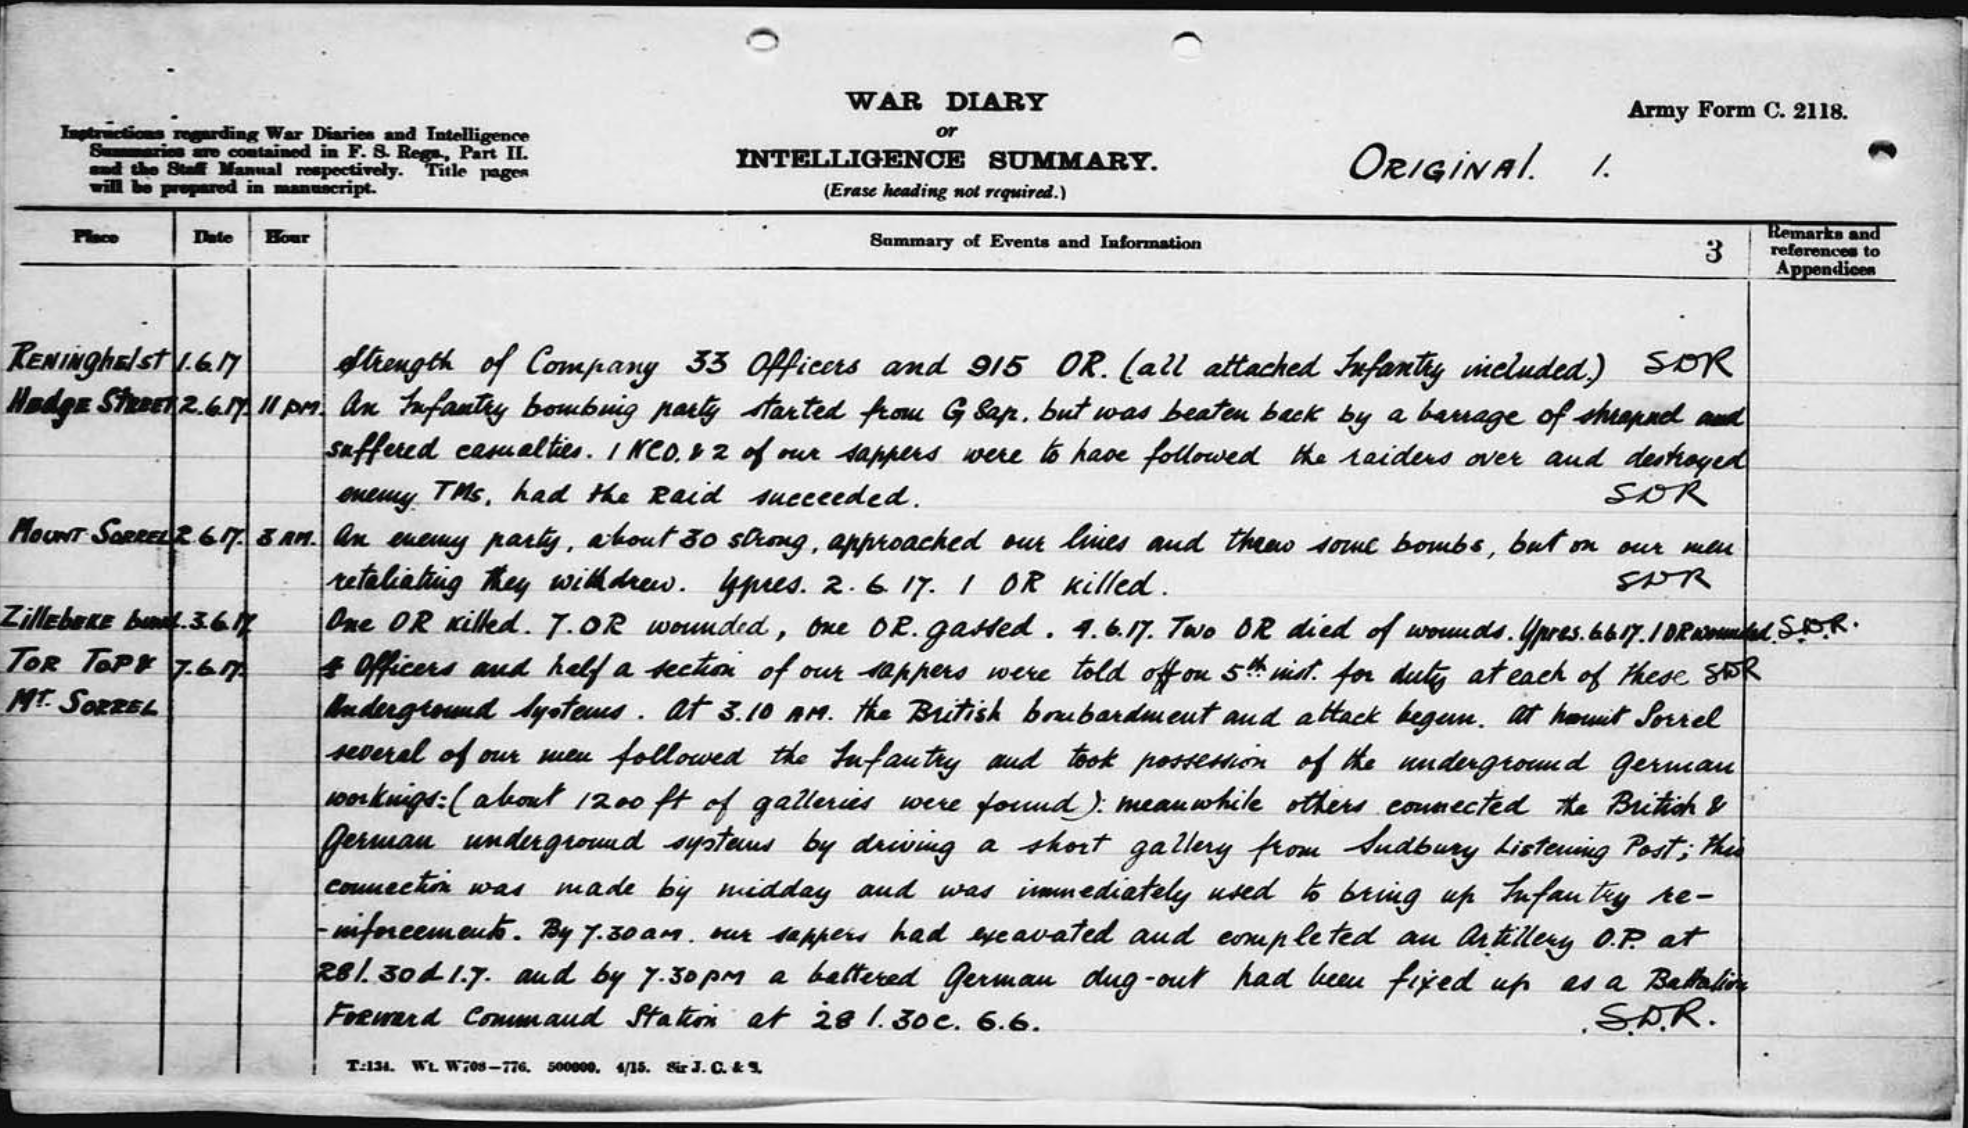 WAR DIARY
or
INTELLIGENCE SUMMARY.
(Erase heading not required.)
Army Form C. 2118.
Instructions regarding War Diaries and Intelligence
Summaries are contained in F. S. Regs., Part II.
and the Staff Manual respectively. Title pages
will be prepared in manuscript.
ORIGINAL. 1.
Place Date Hour Summary of Events and Information 3 Remarks and
references to
Appendices
RENINGhelst 1.6.17 Strength of Company 33 Officers and 915 OR. (all attached Infantry included.) SDR
Hedge STREET 2.6.17. 11 pm. An Infantry bombing party started from G Sap, but was beaten back by a barrage of shrapnel and
suffered casualties. 1 NCO. & 2 of our sappers were to have followed the raiders over and destroyed
enemy TMs, had the Raid succeeded. SDR
MOUNT SORREL 2.6.17. 3 AM. An enemy party, about 30 strong, approached our lines and threw some bombs, but on our men
retaliating they withdrew. Ypres. 2.6.17. 1 OR killed. SDR
ZillEBEKE bund. 3.6.17 One OR killed. 7. OR wounded, One OR. gassed. 4.6.17. Two OR died of wounds. Ypres. 6.6.17. 1 OR wounded. S.D.R.
TOR TOP & 7.6.17. 4 Officers and half a section of our sappers were told off on 5th inst. for duty at each of these SDR
MT. SORREL Underground Systems. At 3.10 AM. the British bombardment and attack begun. At Mount Sorrel
several of our men followed the Infantry and took possession of the underground German
workings: (about 1200 ft of galleries were found): meanwhile others connected the British &
German underground systems by driving a short gallery from Sudbury Listening Post; this
connection was made by midday and was immediately used to bring up Infantry re-
-inforcements. By 7.30 am. our sappers had excavated and completed an Artillery O.P. at
28 1.30d 1.7. and by 7.30 pm a battered German dug-out had been fixed up as a Battalion
Forward Command Station at 28 1.30c. 6.6. S.D.R.
T:134. Wt. W708-776. 500000. 4/15. Sir J. C. & S.